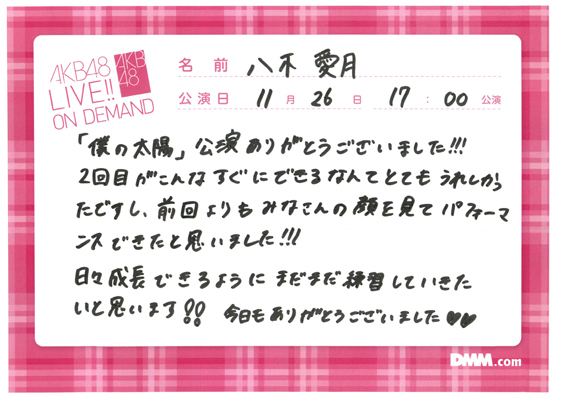 AKB48
LIVE!!
ON DEMAND
AKB
48
名前 八木 愛月
公演日 11月26日 17:00公演
「僕の太陽」公演ありがとうございました!!!
2回目がこんなすぐにできるなんてとてもうれしかっ
たですし、前回よりもみなさんの顔を見てパフォーマ
ンスできたと思いました!!!
日々成長できるようにまだまだ練習していきた
いと思います!! 今日もありがとうございました♥♥
DMM.com